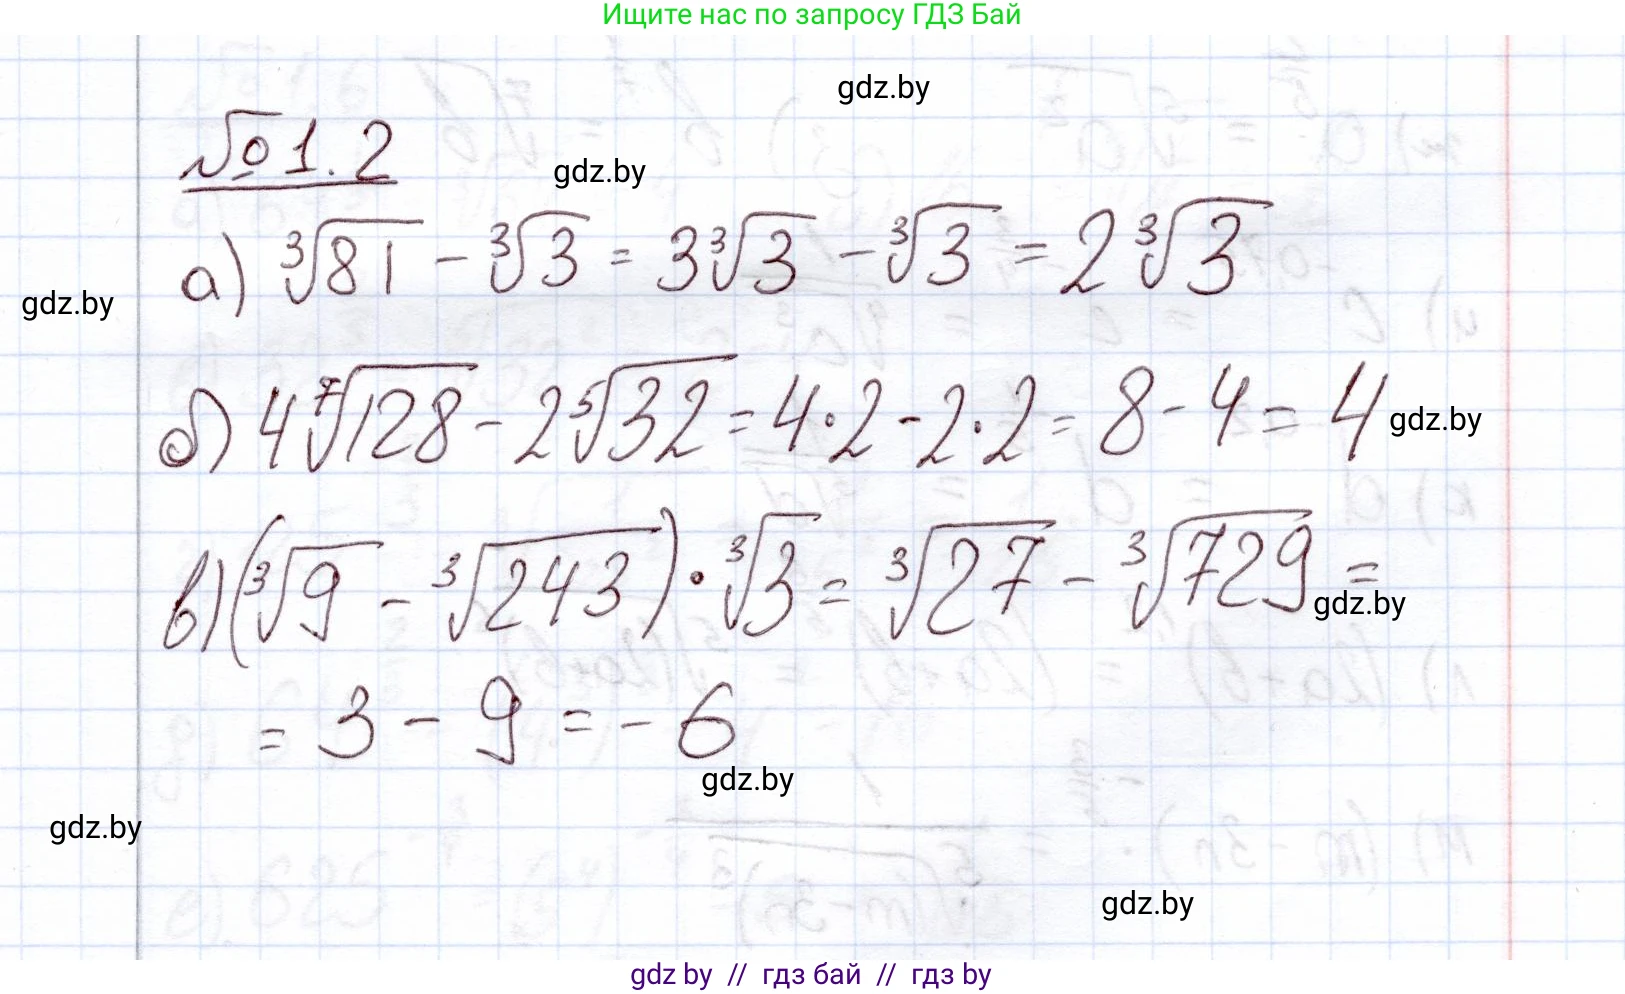 Ищите нас по запросу ГДЗ Бай
gdz.by
№ 1.2
gdz.by
а) ∛81 - ∛3 = 3∛3 - ∛3 = 2∛3
gdz.by
б) 4⁷√128 - 2⁵√32 = 4·2 - 2·2 = 8 - 4 = 4
gdz.by
в) (∛9 - ∛243) · ∛3 = ∛27 - ∛729 =
gdz.by
= 3 - 9 = - 6
gdz.by
gdz.by
gdz.by
gdz by // гдз бай // гдз by